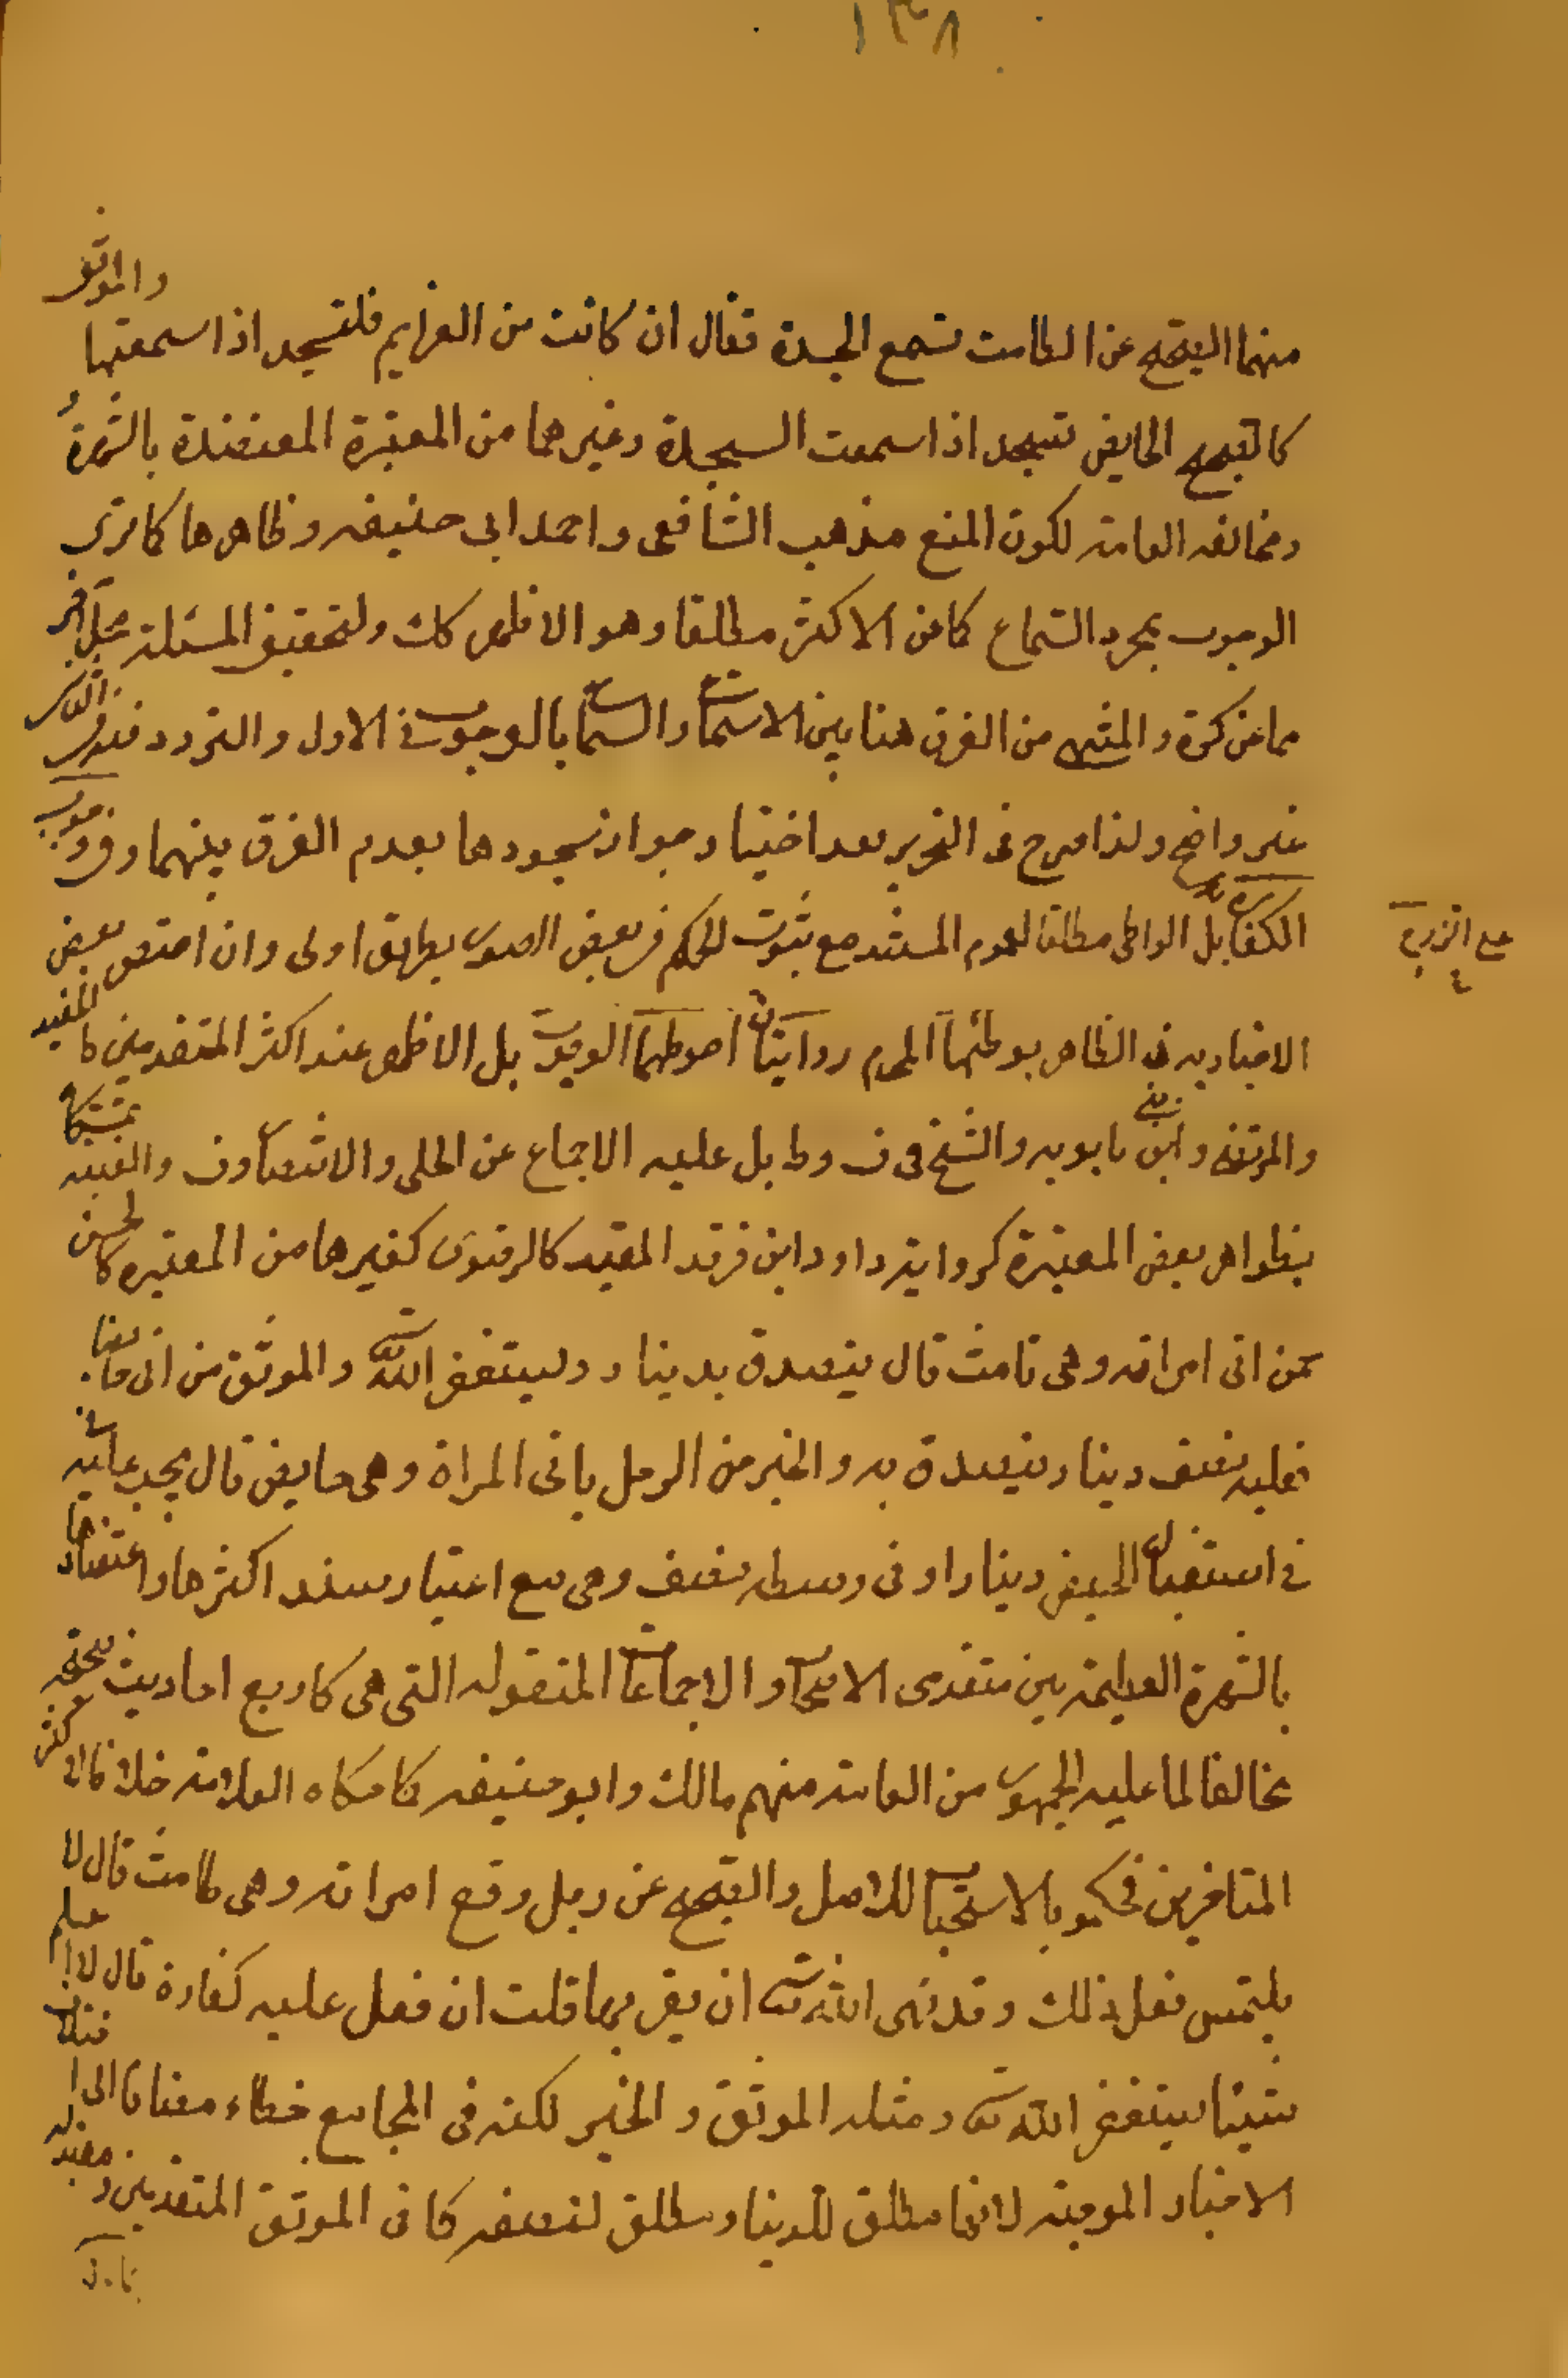 ١٣٨
منها الصحيح عن الطامث تسمع السجدة فقال ان كانت من العزايم فلتسجد اذا سمعتها والموثق
كالصحيح الحايض تسجد اذا سمعت السجدة وغيرهما من المعتبرة المعتضدة بالشهرة
ومخالفه العامة لكون المنع مذهب الشافعى واحمد ابى حنيفه وظاهرها كما ترى
الوجوب بمجرد السماع كما عن الاكثر مطلقا وهو الاظهر كك ولتحقيق المسئلة محل اخر
مما عن كرة و المنتهى من الفرق هنا بين الاستماع والسماع بالوجوب فى الاول والتردد فى
غير واضح ولذا صرح فى التحرير بعد اختيار جواز سجودها بعدم الفرق بينهما وفى وجوب
الكفارة على الواطى مطلقا لعموم المستند مع ثبوت الحكم فى بعض الصور بطريق اولى وان اختص بعض
الاخبار به فى الظاهر بوطئها المحرم روايتان احوطهما الوجوب بل الاظهر عند اكثر المتقدمين كالمفيد
والمرتضى وابنى بابويه والشيخ فى ف وط بل عليه الاجماع عن الحلى والانتصار وف والغنيه تمسكا
بظواهر بعض المعتبرة كرواية داود ابن فرقد المقيد كالرضوى كغيرها من المعتبره كالحسن
عمن اتى امراته وهى طامث قال يتصدق بدينار وليستغفر الله تعالى والموثق من اتى حايضا
فعليه نصف دينار يتصدق به والخبر عن الرجل ياتى المراة وهى حايض قال يجب عليه
فى استقبال الحيض دينار وفى وسطه نصف وهى مع اعتبار سند اكثرها واعتضادها
بالشهرة العظيمة بين متقدمى الاصحاب والاجماعات المنقوله التى هى كاربع احاديث صحيحه
مخالفا لما عليه الجمهور من العامة منهم مالك وابو حنيفه كما حكاه العلامة خلافا لاكثر
المتاخرين فحكموا بالاستحباب للاصل والصحيح عن رجل وقع امراته وهى طامث قال لا
يلتمس فعل ذلك وقد نهى الله تعالى ان يقربها قلت ان فعل عليه كفارة قال لا اعلم
شيئا يستغفر الله تعالى ومثله الموثق و الخبر لكنه فى المجامع خطاء مضافا الى
الاخبار الموجبه لانها مطلق للدينار ومطلق لنصفه كما فى الموثق المتقدمين و